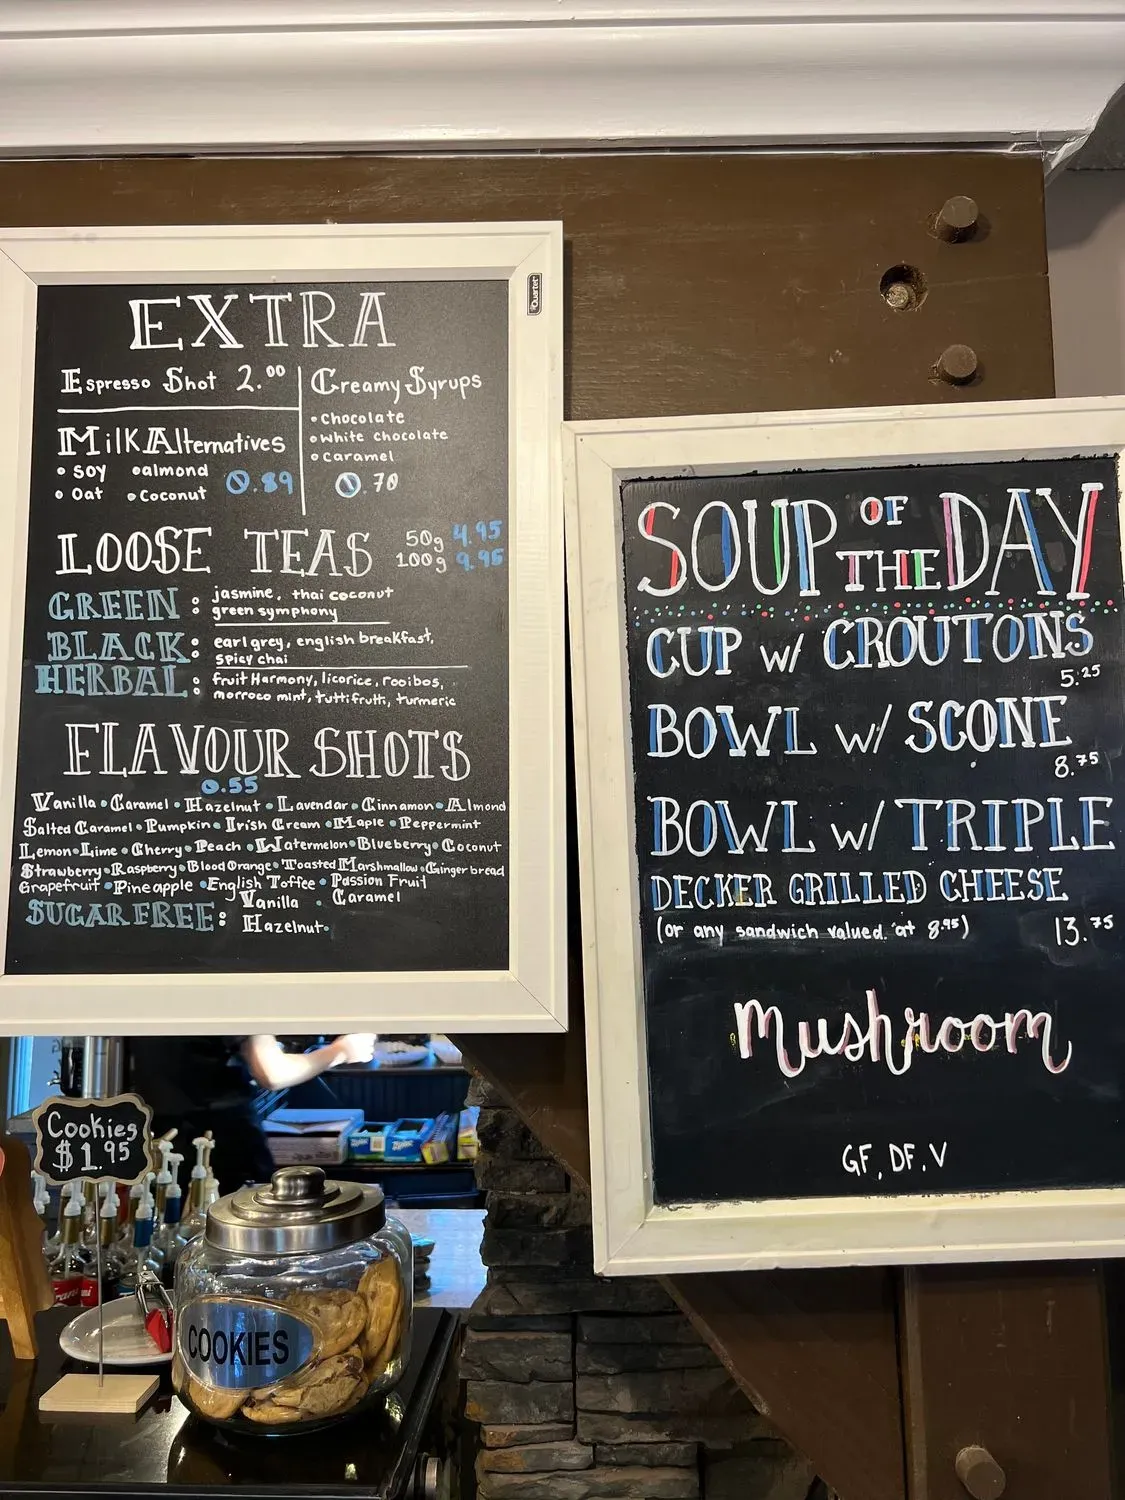 Quartet
EXTRA
Espresso Shot 2.00
Milk Alternatives
• Soy • almond
• Oat • Coconut
0.89
Creamy Syrups
• Chocolate
• White chocolate
• Caramel
0.70
LOOSE TEAS
50g 4.95
100g 9.95
GREEN : jasmine, thai coconut
green symphony
BLACK : earl grey, english breakfast,
spicy chai
HERBAL : fruit Harmony, licorice, rooibos,
morroco mint, tutti frutti, turmeric
FLAVOUR SHOTS
0.55
Vanilla • Caramel • Hazelnut • Lavendar • Cinnamon • Almond
Salted Caramel • Pumpkin • Irish Cream • Maple • Peppermint
Lemon • Lime • Cherry • Peach • Watermelon • Blueberry • Coconut
Strawberry • Raspberry • Blood Orange • Toasted Marshmallow • Gingerbread
Grapefruit • Pineapple • English Toffee • Passion Fruit
SUGAR FREE : Vanilla • Caramel
Hazelnut •
SOUP OF THE DAY
CUP w/ CROUTONS
5.25
BOWL w/ SCONE
8.75
BOWL w/ TRIPLE
DECKER GRILLED CHEESE
(or any sandwich valued at 8.95) 13.75
Mushroom
GF, DF, V
Cookies
$1.95
COOKIES